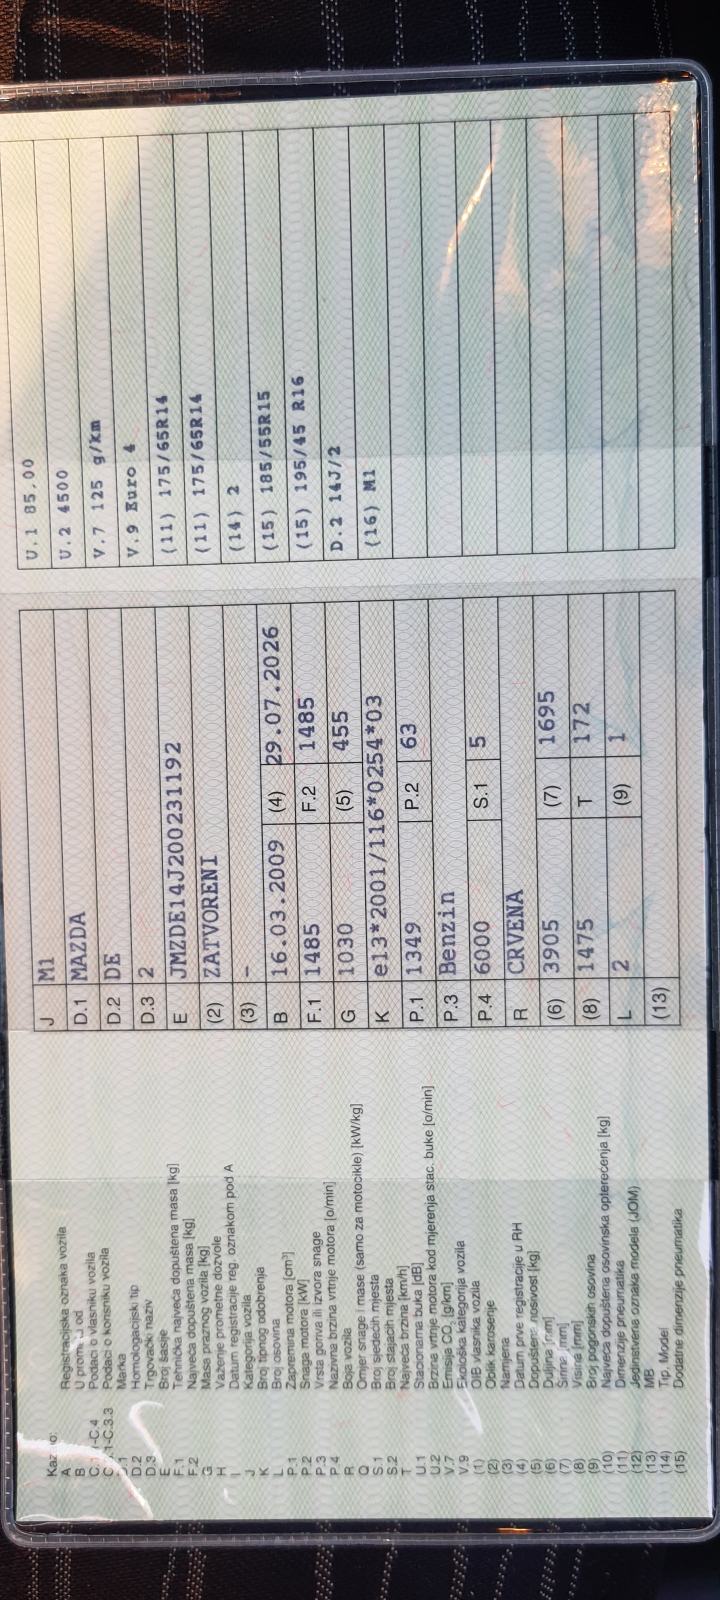 Kazalo:
A Registracijska oznaka vozila
B U prometu od
C.1.1-C.4 Podaci o vlasniku vozila
C.3.1-C.3.3 Podaci o korisniku vozila
D.1 Marka
D.2 Homologacijski tip
D.3 Trgovački naziv
E Broj šasije
F.1 Tehnička najveća dopuštena masa [kg]
F.2 Najveća dopuštena masa [kg]
G Masa praznog vozila [kg]
H Važenje prometne dozvole
I Datum registracije reg. oznakom pod A
J Kategorija vozila
K Broj tipnog odobrenja
L Broj osovina
P.1 Zapremina motora [cm³]
P.2 Snaga motora [kW]
P.3 Vrsta goriva ili izvora snage
P.4 Nazivna brzina vrtnje motora [o/min]
R Boja vozila
Q Omjer snage i mase (samo za motocikle) [kW/kg]
S.1 Broj sjedećih mjesta
S.2 Broj stajaćih mjesta
T Najveća brzina [km/h]
U.1 Stacionarna buka [dB]
U.2 Brzina vrtnje motora kod mjerenja stac. buke [o/min]
V.7 Emisija CO₂ [g/km]
V.9 Ekološka kategorija vozila
(1) OIB vlasnika vozila
(2) Oblik karoserije
(3) Namjena
(4) Datum prve registracije u RH
(5) Dopuštena nosivost [kg]
(6) Duljina [mm]
(7) Širina [mm]
(8) Visina [mm]
(9) Broj pogonskih osovina
(10) Najveća dopuštena osovinska opterećenja [kg]
(11) Dimenzije pneumatika
(12) Jedinstvena oznaka modela (JOM)
(13) MB
(14) Tip. Model
(15) Dodatne dimenzije pneumatika
J M1
D.1 MAZDA
D.2 DE
D.3 2
E JMZDE14J200231192
(2) ZATVORENI
(3) -
B 16.03.2009 (4) 29.07.2026
F.1 1485 F.2 1485
G 1030 (5) 455
K e13*2001/116*0254*03
P.1 1349 P.2 63
P.3 Benzin
P.4 6000 S.1 5
R CRVENA
(6) 3905 (7) 1695
(8) 1475 T 172
L 2 (9) 1
(13)
U.1 85,00
U.2 4500
V.7 125 g/km
V.9 Euro 4
(11) 175/65R14
(11) 175/65R14
(14) 2
(15) 185/55R15
(15) 195/45 R16
D.2 14J/2
(16) M1